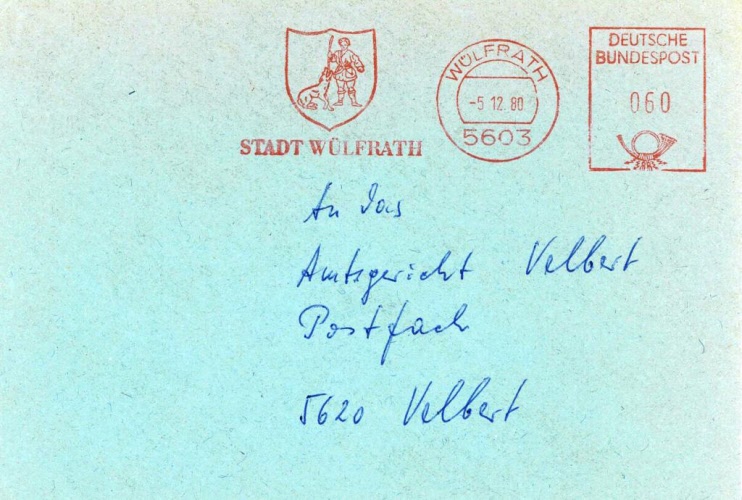 STADT WÜLFRATH
WÜLFRATH
-5.12.80
5603
DEUTSCHE
BUNDESPOST
060
An das
Amtsgericht Velbert
Postfach
5620 Velbert